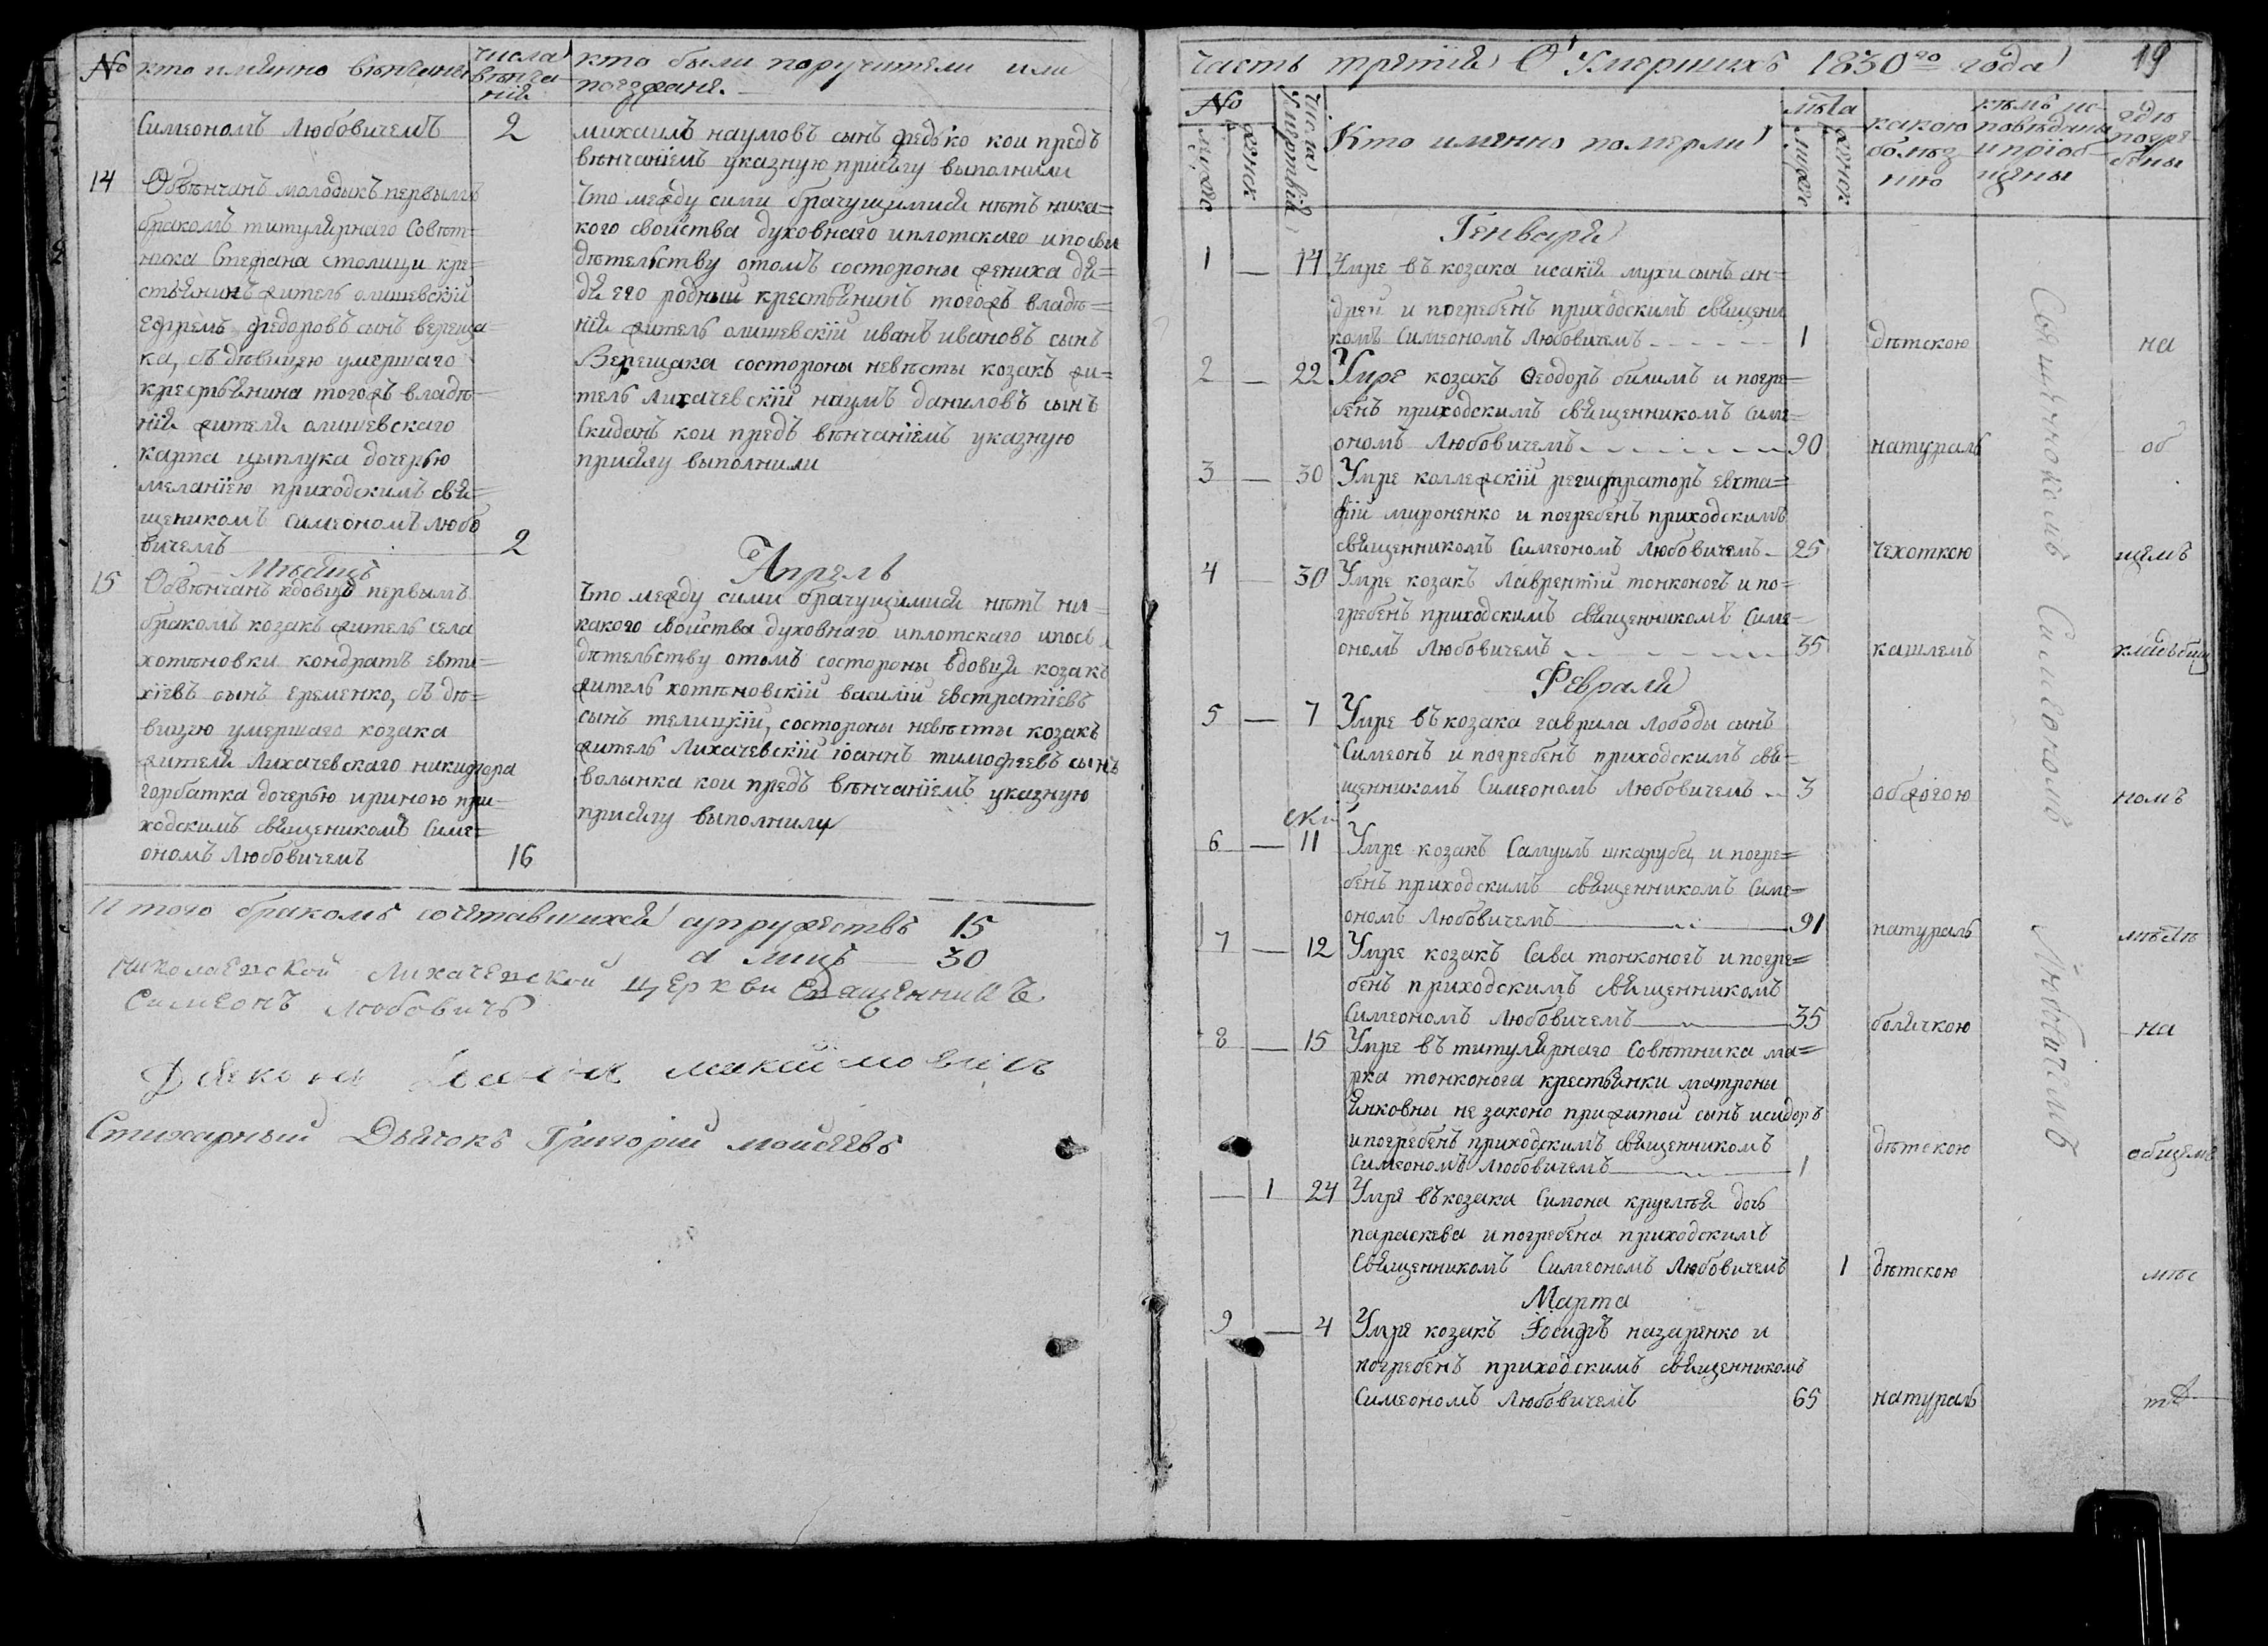 № кто имянно венчани
числа венчаний
кто были поручители или
поезжанѣ.
Симеономъ Любовичемъ 2
михаилъ наумовъ сынъ федько кои предъ
вѣнчаніемъ указную присягу выполнили
14 Обвѣнчанъ молодыкъ первымъ
бракомъ титулярнаго Совѣт=
ника Стефана столици кре=
стьянинъ житель олишевскій
Ефремъ федоровъ сынъ вереща=
ка, съ дѣвицею умершаго
крестьянина тогожъ владѣ=
нія жителя олишевскаго
карпа цыплука дочерью
меланіею приходскимъ свя=
щеникомъ симеономъ любо
вичемъ 2
Что между сими брачущимися нѣтъ ника=
кого свойства духовнаго иплотскаго ипосви
дѣтельству отомъ состороны жениха дя=
дя его родный крестьянинъ тогожъ владѣ=
нія житель олишевскій иванъ ивановъ сынъ
Верещака состороны невѣсты козакъ жи=
тель Лихачевскій наумъ даниловъ сынъ
Скиданъ кои предъ вѣнчаніемъ указную
присягу выполнили
Мѣсяцъ Апрель
15 Обвѣнчанъ вдовцъ первымъ
бракомъ козакъ житель села
хотѣновки кондратъ евти=
хіевъ сынъ Еременко, съ дѣ=
вицею умершаго козака
жителя Лихачевскаго никифора
горбатка дочерью ириною при=
ходскимъ священикомъ Симе=
ономъ Любовичемъ 16
Что между сими брачущимися нѣтъ ни=
какого свойства духовнаго иплотскаго ипосви
дѣтельству отомъ состороны вдовця козакъ
житель хотѣновскій василій Евстратіевъ
сынъ телицкій, состороны невѣсты козакъ
житель Лихачевскій іоаннъ тимофеевъ сынъ
волынка кои предъ вѣнчаніемъ указную
присягу выполнили
И того бракомъ сочетавшихся супружествъ 15
а лицъ 30
николаевской Лихачевской церкви Священникъ
Симеонъ Любовичъ
Дьяконъ Іоаннъ максимовичъ
Стихарный Дьячокъ Григорій моисеевъ
Часть третія О Умершихъ 1830го года 19
№ мужеск женск
числа умертвій
Кто именно померли
лѣта мужес женск
какою болѣзнию
кѣмъ исповѣданы и пріобщены
гдѣ погребены
Генваря
1 — 14 Умре въ козака исакія мухи сынъ ан=
дрей и погребенъ приходскимъ священи
комъ Симеономъ Любовичемъ 1 дѣтскою на
2 — 22 Умре козакъ Феодоръ билимъ и погре=
бенъ приходскимъ священникомъ Симе=
ономъ Любовичемъ 90 натураль об
3 — 30 Умре коллежскій регистраторъ евста=
фій мироненко и погребенъ приходскимъ
священникомъ Симеономъ Любовичемъ 25 чехоткою щемъ
4 — 30 Умре козакъ Лаврентій тонконогъ и по=
гребенъ приходскимъ священникомъ Симе=
ономъ Любовичемъ 35 кашлемъ кладьбищ
Февраля
5 — 7 Умре въ козака гаврила лободы сынъ
Симеонъ и погребенъ приходскимъ свя=
щенникомъ Симеономъ Любовичемъ 3 обжогою номъ
6 — 11 Умре козакъ Самуилъ шкаруба, и погре=
бенъ приходскимъ священникомъ Симе=
ономъ Любовичемъ 91 натураль мѣстѣ
7 — 12 Умре козакъ Сава тонконогъ и погре=
бенъ приходскимъ священникомъ
Симеономъ Любовичемъ 35 болячкою на
8 — 15 Умре въ титулярнаго Совѣтника ма=
рка тонконога крестьянки матроны
Янковны не законо прижитой сынъ исидоръ
и погребенъ приходскимъ священникомъ
Симеономъ Любовичемъ 1 дѣтскою общемъ
— 1 24 Умре въ козака Симона круглѣя дочь
параскева и погребена приходскимъ
Священникомъ Симеономъ Любовичемъ 1 дѣтскою мѣс
Марта
9 — 4 Умре козакъ Іосифъ назаренко и
погребенъ приходскимъ священникомъ
Симеономъ Любовичемъ 65 натураль тѣ
Священникомъ Симеономъ Любовичемъ